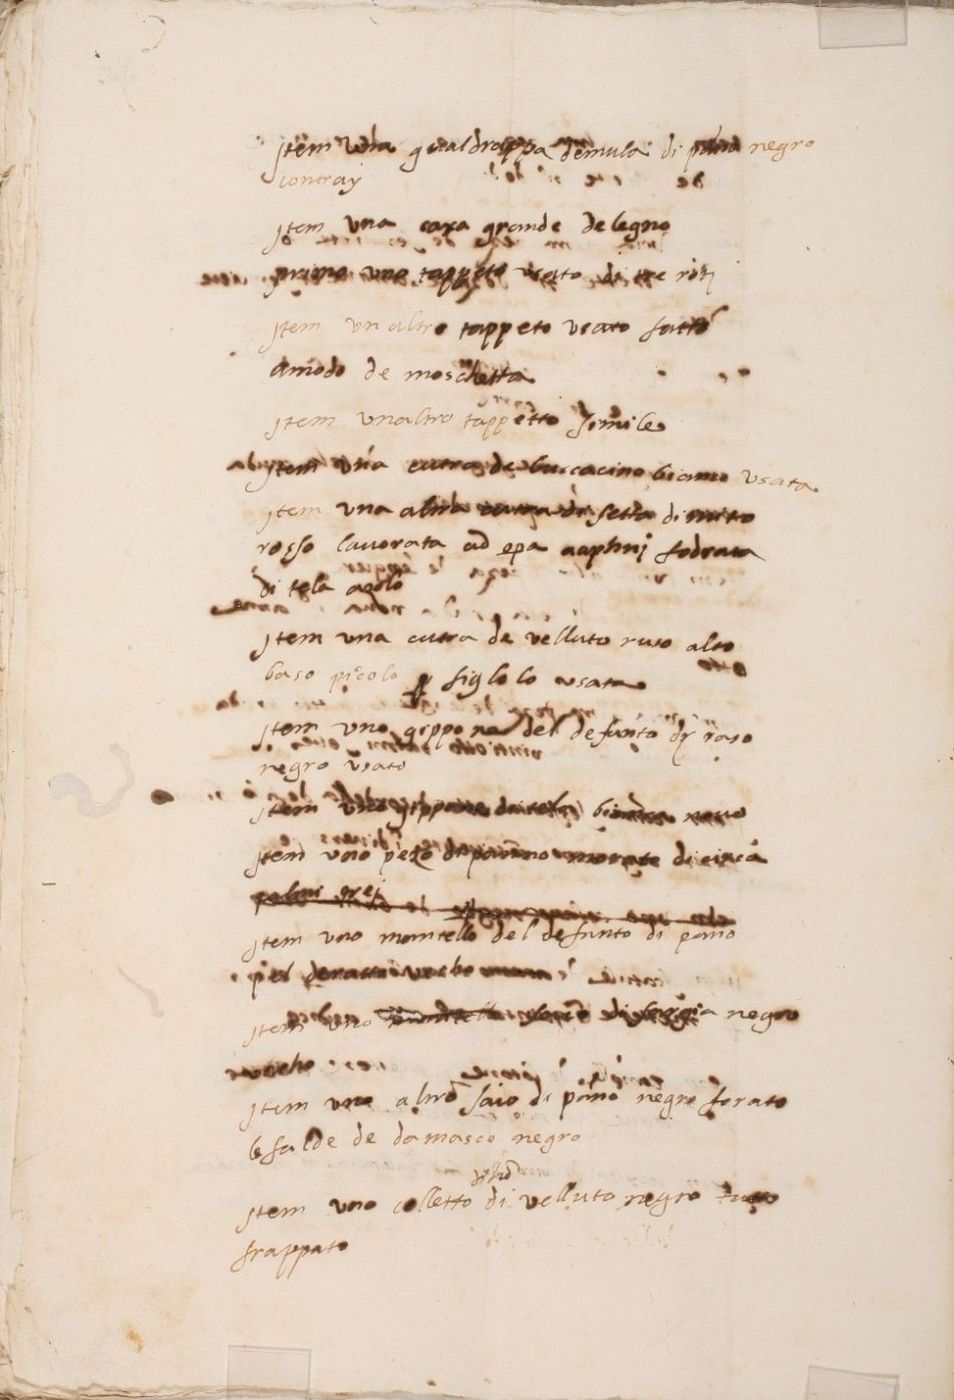 Item una gualdrappa de mula di pano negro
contray
Item una caxa grande de legno
primo uno tappeto usato di tre roti
Item un altro tappeto usato fatto
a modo de moschetta
Item unaltro tappetto simile
Item una cutra de buccacino bianco usata
Item una altra cutra di seta di
rosso lavorata ad epa fodrata
di tela
Item una cutra de velluto ruso alto
baso picolo figlolo usata
Item uno gippone del defunto di raso
negro usato
Item uno gippone de tela biancha novo
Item uno pezo de panno morato di circa
palmi
Item uno mantello del defunto di pano
vecho
Item uno negro
vecho
Item uno altro saio di pano negro forato
le falde de damasco negro
Item uno colletto di velluto negro tutto
frappato